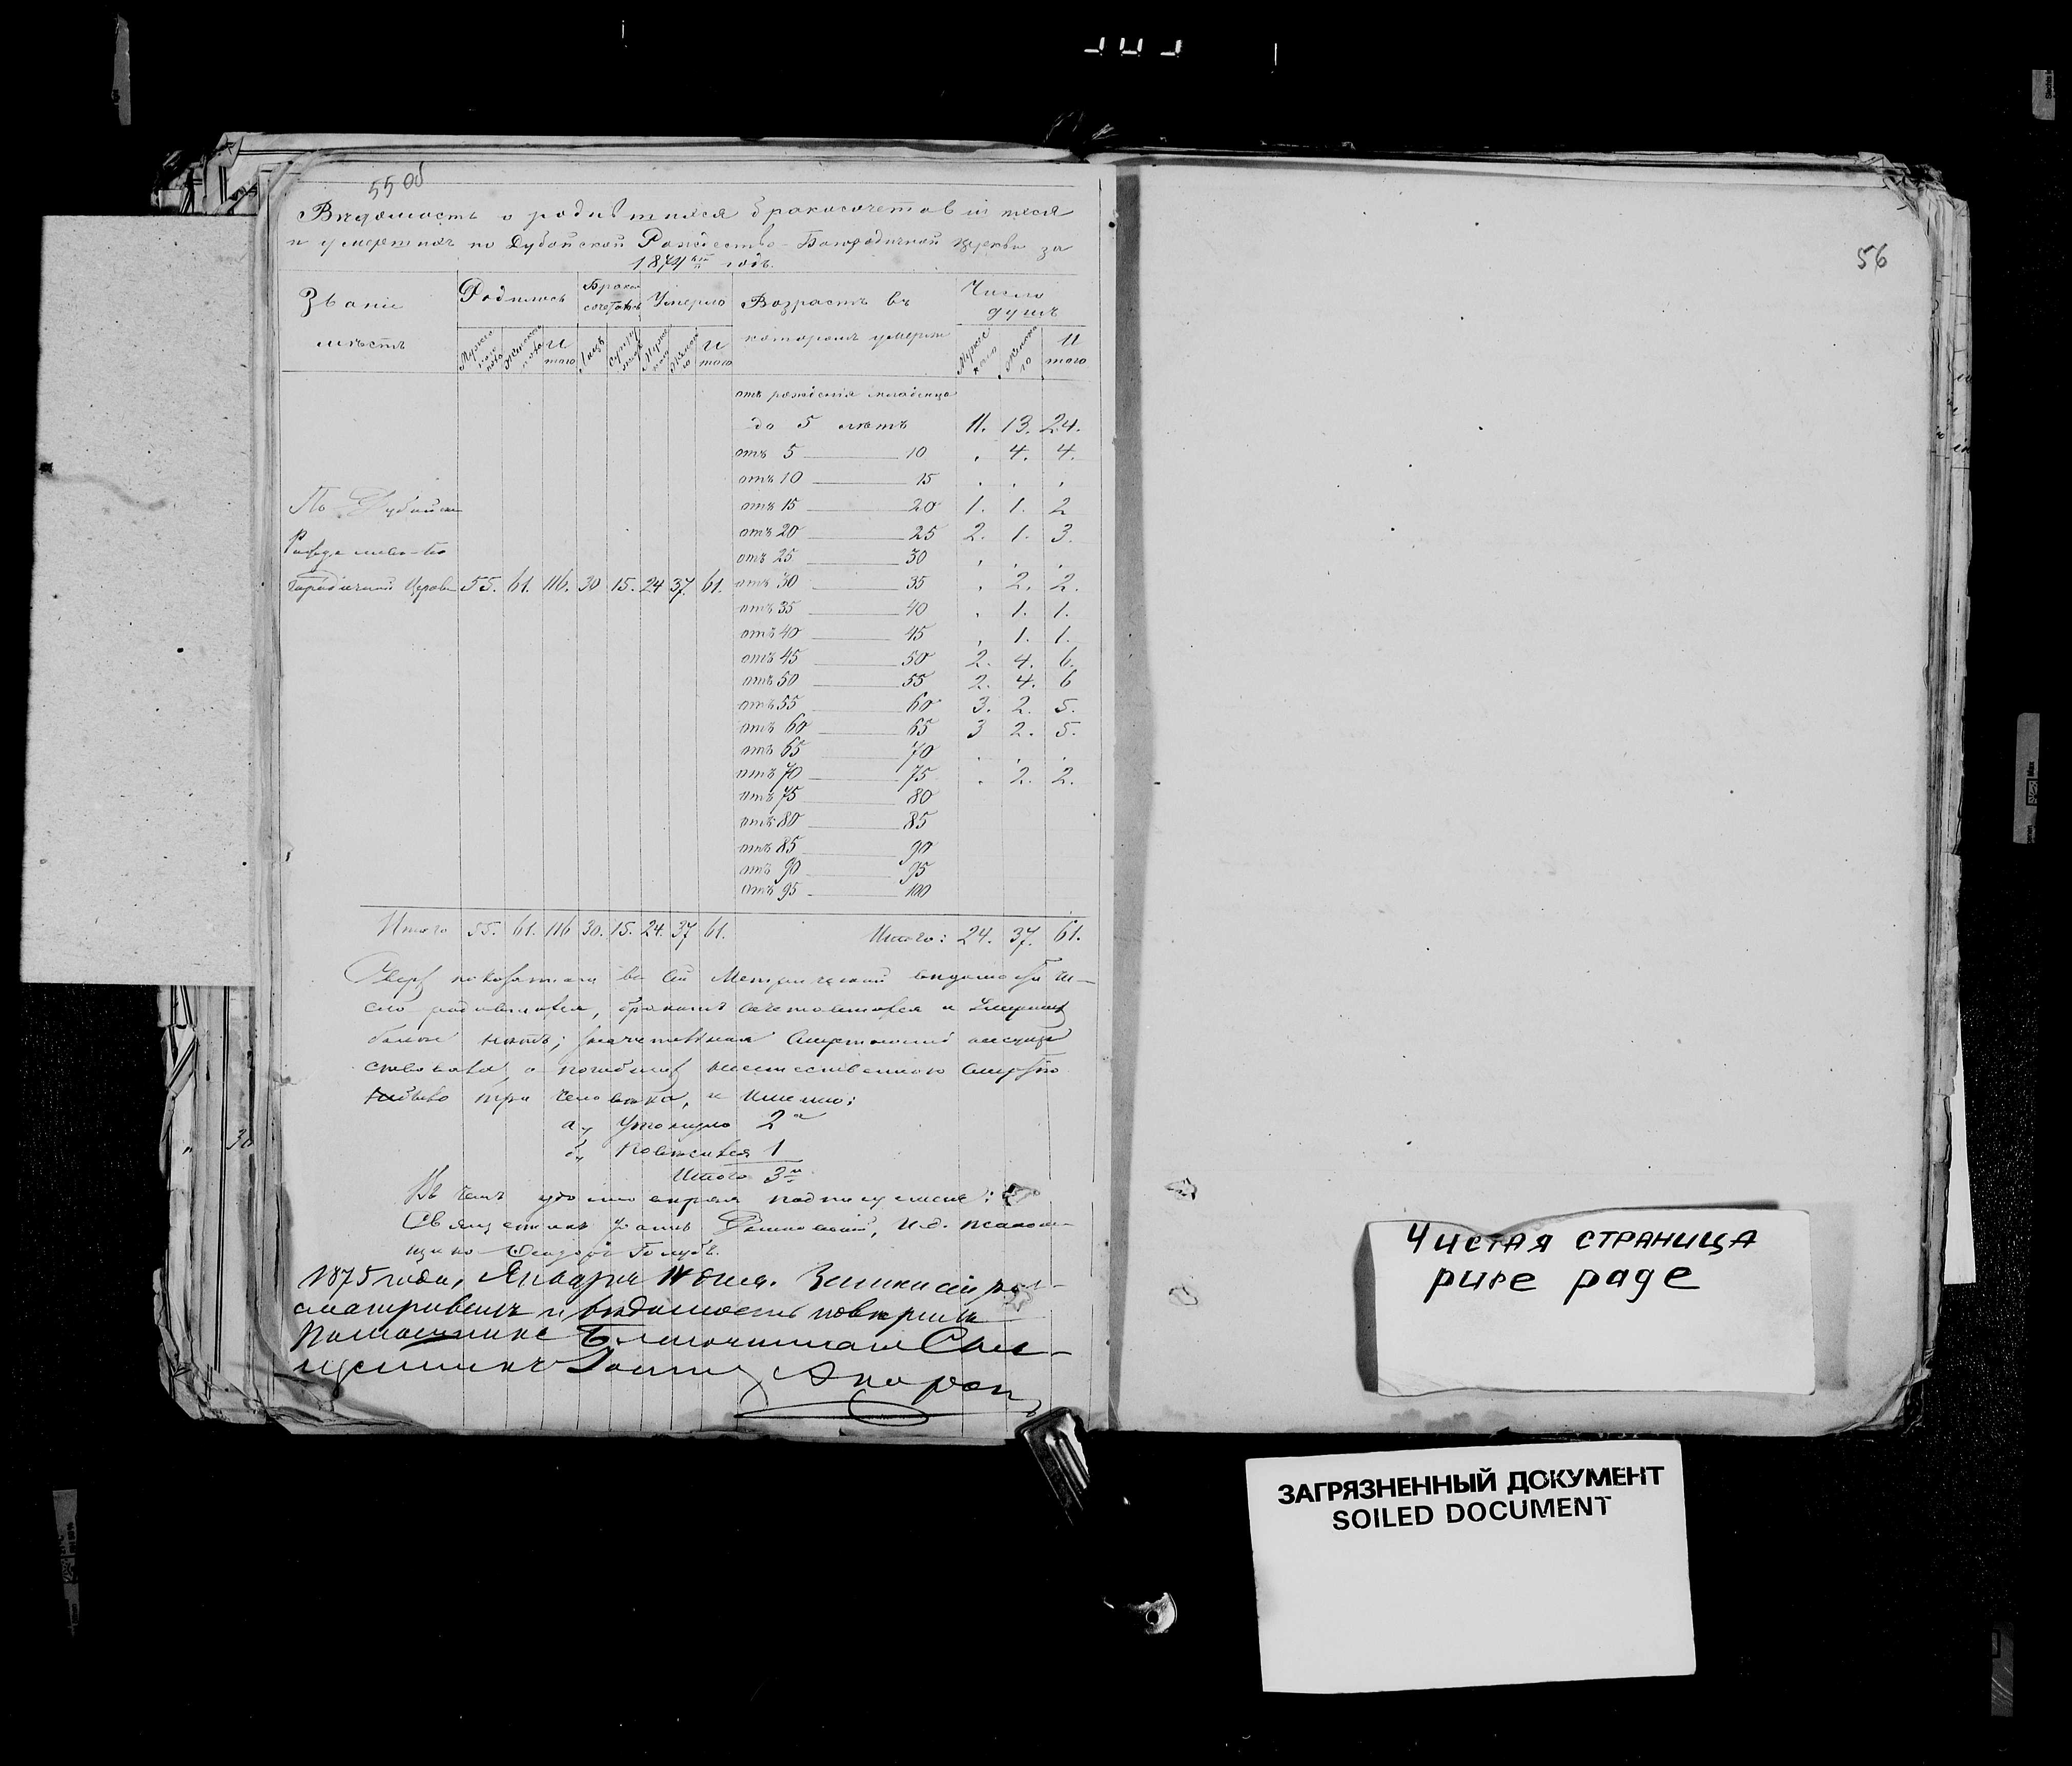 55 об
Вѣдомость о родившихся бракосочетавшихся
и умершихъ по Дубойской Рождество-Богородичной церкви за
1874й годъ.
Званіе Родилось Брако Умерло Возрастъ въ Число
сочеталось душъ
мѣстъ которомъ умерли
Мужескаго пола Женскаго пола И того Лицъ Мужес Женска го И того Мужес каго Женска го И того
отъ рожденія младенца
до 5 лѣтъ 11. 13. 24.
отъ 5 10 . 4. 4.
отъ 10 15 . . .
По Дубойской отъ 15 20 1. 1. 2
отъ 20 25 2. 1. 3.
Рождество-Бо отъ 25 30 . . .
городичной Церкви 55. 61. 116. 30 15. 24 37. 61. отъ 30 35 . 2. 2.
отъ 35 40 . 1. 1.
отъ 40 45 . 1. 1.
отъ 45 50 2. 4. 6.
отъ 50 55 2. 4. 6
отъ 55 60 3. 2. 5.
отъ 60 65 3 2. 5.
отъ 65 70 . . .
отъ 70 75 . 2. 2.
отъ 75 80
отъ 80 85
отъ 85 90
отъ 90 95
отъ 95 100
Итого 55. 61. 116 30. 15. 24. 37 61. Итого: 24. 37. 61.
Сверхъ показаннаго въ сей Метрической вѣдомости чи-
сло родившихся, бракомъ сочетавшихся и умершихъ
болѣе нѣтъ;
смертію
три человѣка, а именно:
а., утонуло 2
б., 1
Итого 3
Въ чемъ удостовѣряя подписуемся:
Священникъ И.д. псалом-
щика Ѳеодоръ Голубъ.
1875 года, Января 14 дня. Записи сіи раз-
сматривалъ и вѣдомость повѣрилъ
Помощникъ Благочиннаго Свя-
щенникъ
56
Чистая страница
pure page
ЗАГРЯЗНЕННЫЙ ДОКУМЕНТ
SOILED DOCUMENT
30